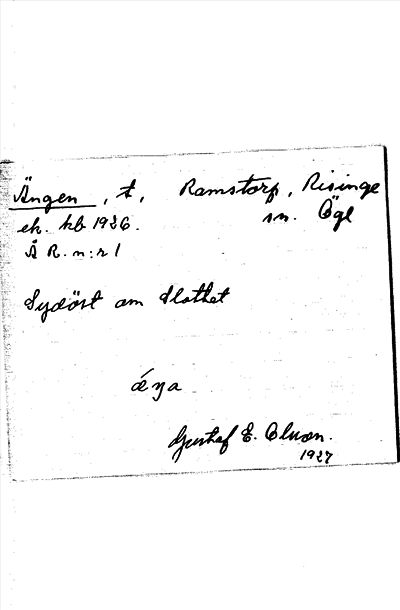 Ängen, t, Ramstorp, Risinge
ek. kb 1926. sn. Ögl
Ä R. n:r 1
Sydöst om Slottet
Gustaf E.
1927